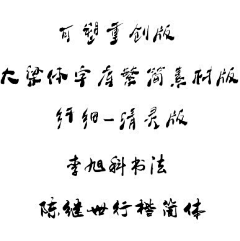 可塑重创版
大梁体字库繁简素材版
纤细一清灵版
李旭科书法
陈继世行楷简体